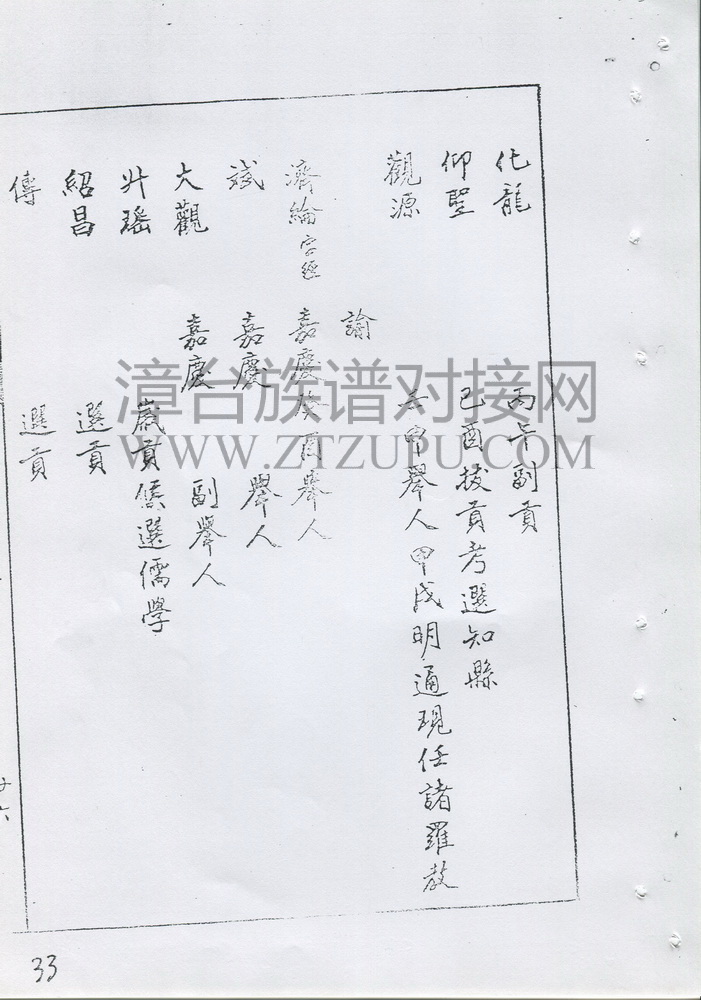 化龍 丙午副貢
仰聖 己酉拔貢考選知縣
觀源 壬申舉人甲戌明通現任諸羅教
諭
濟綸字經 嘉慶癸酉舉人
斌 嘉慶 舉人
大觀 嘉慶 副舉人
升瑤 歲貢候選儒學
紹昌 選貢
傳 選貢
漳台族谱对接网
WWW.ZTZUPU.COM
33